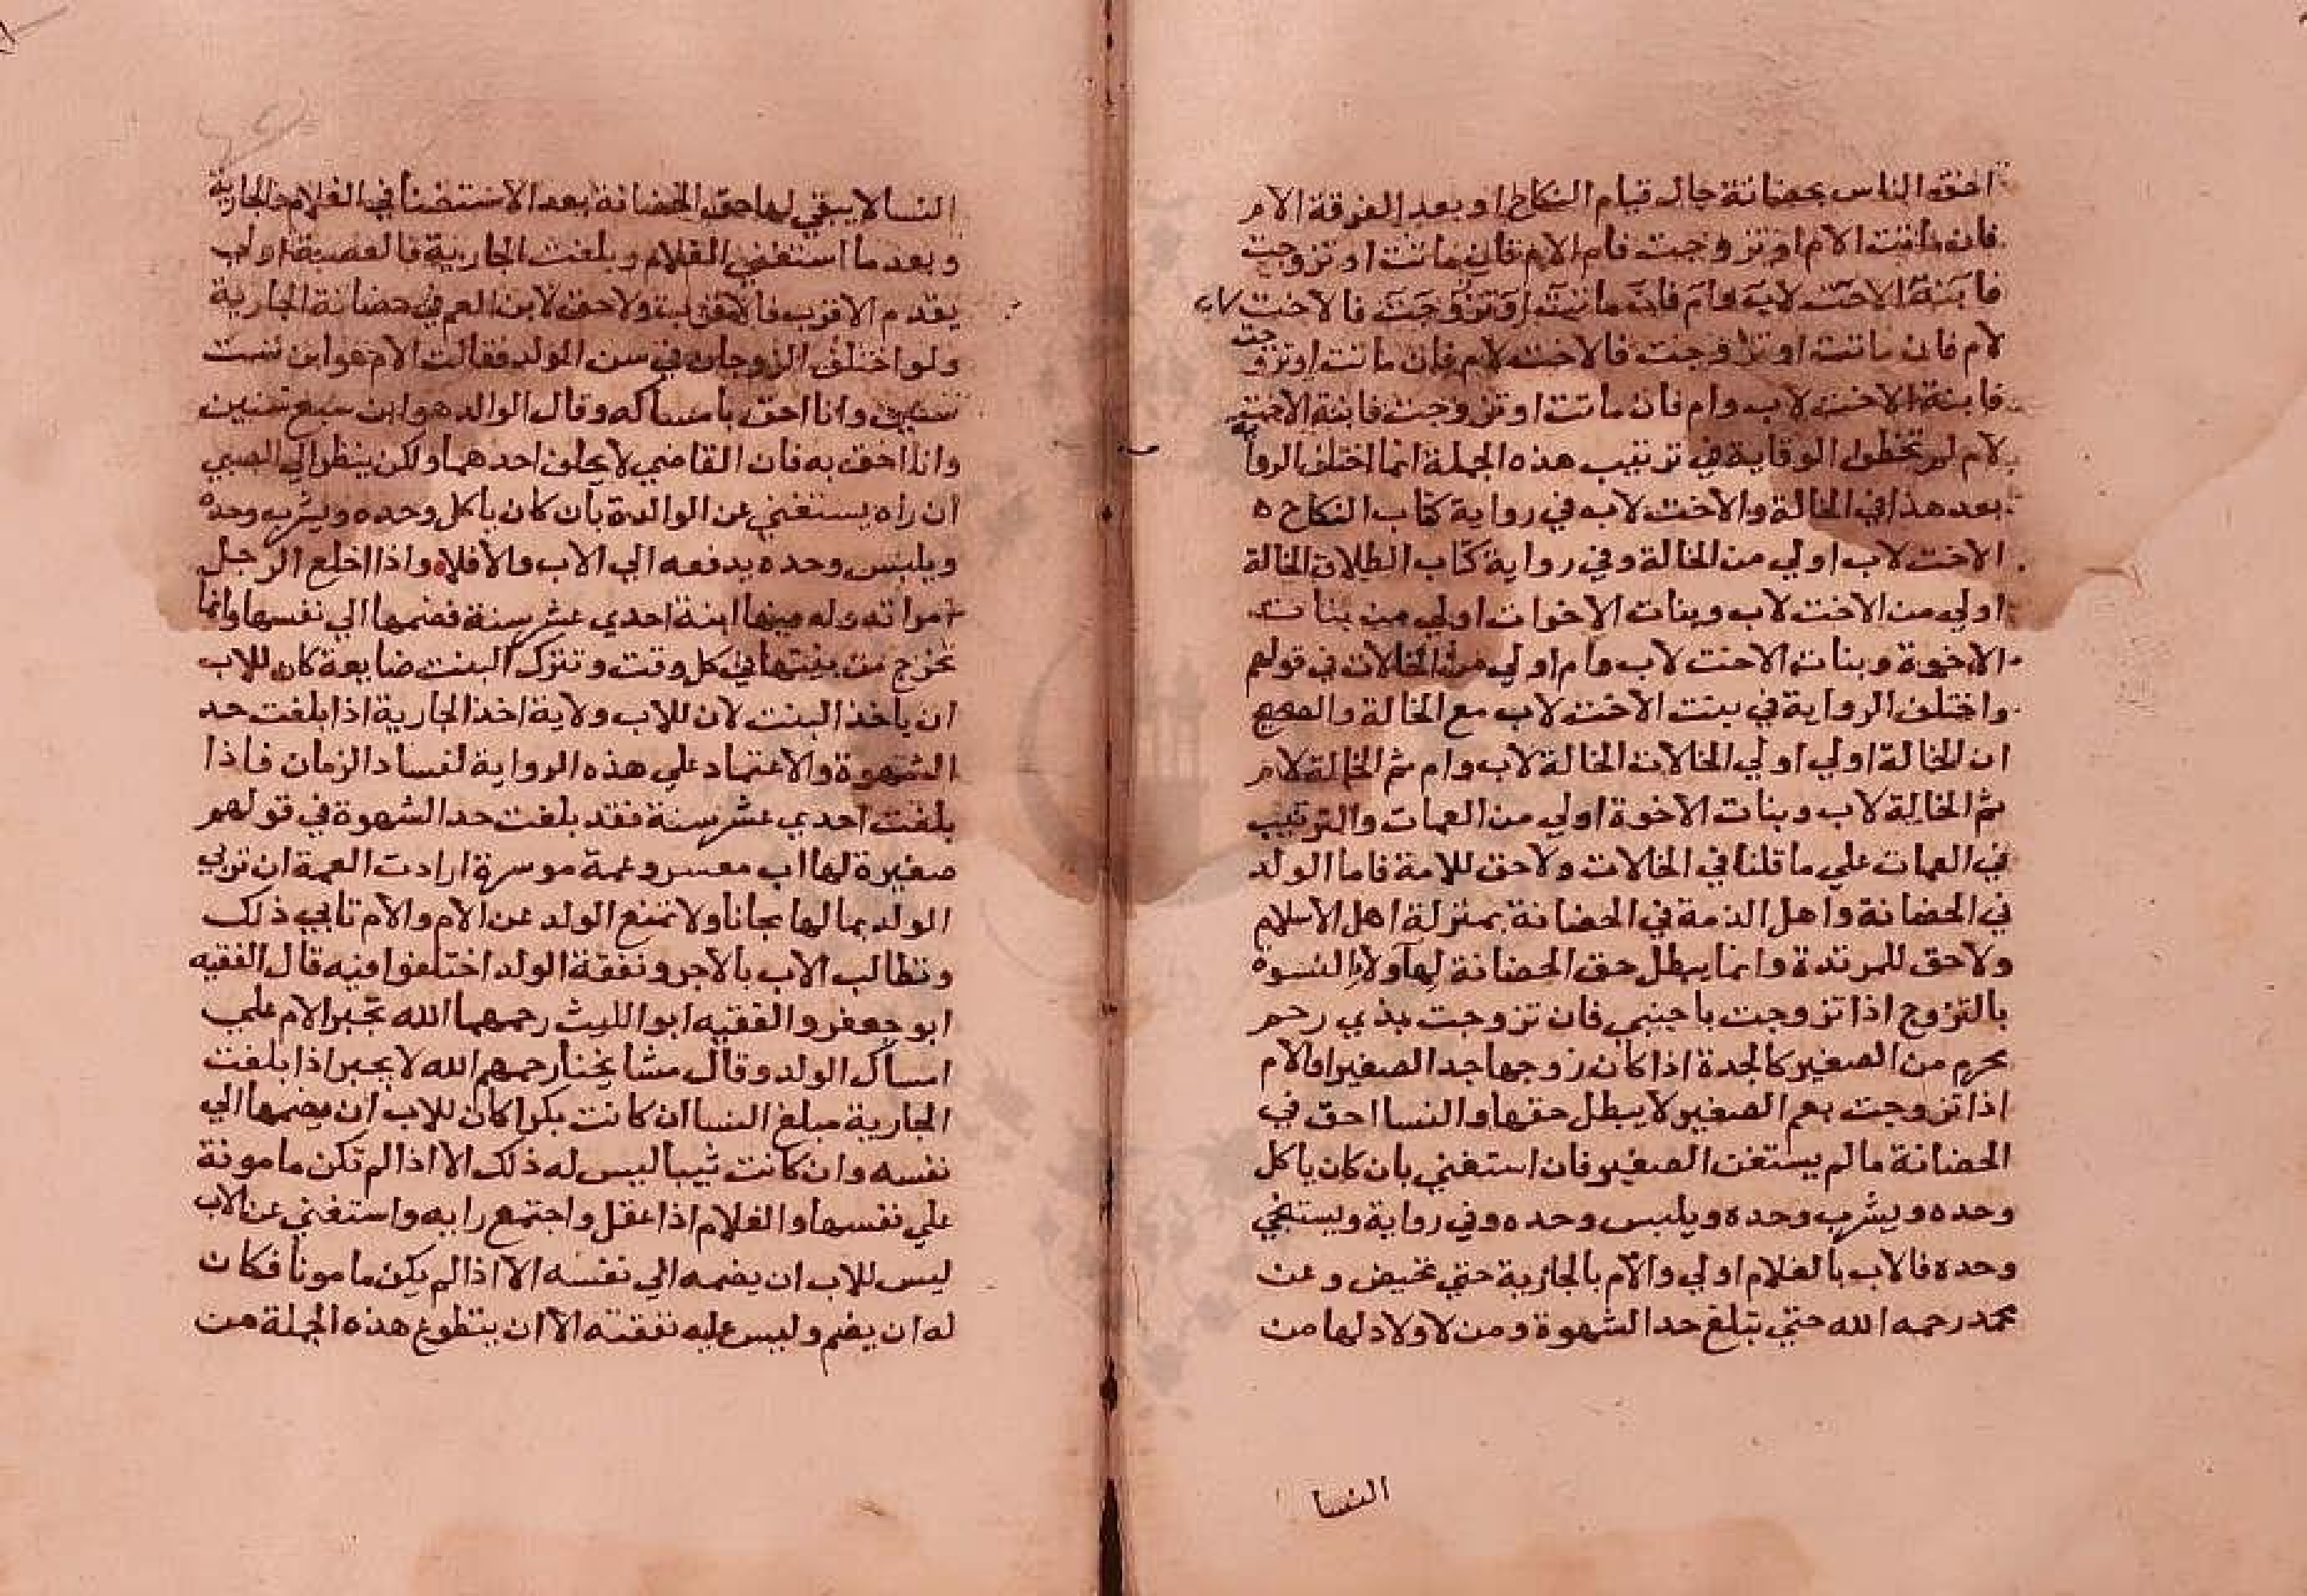 احق الناس بحضانة حال قيام النكاح او بعد الفرقة الام
فان ماتت الام او تزوجت فام الام فان ماتت او تزوجت
فابنة الاخت لاب وام فان ماتت او تزوجت فالاخت لاب
لام فان ماتت او تزوجت فالاخت لام فان ماتت او تزوجت
فابنة الاخت لاب وام فان ماتت او تزوجت فابنة الاخت
لام لم تختلف الرواية في ترتيب هذه الجملة انما اختلف الرواية
بعد هذا في الخالة والاخت لاب في رواية كتاب النكاح ه
الاخت لاب اولي من الخالة وفي رواية كتاب الطلاق الخالة
اولي من الاخت لاب وبنات الاخوات اولي من بنات
الاخوة وبنات الاخت لاب وام اولي من الخالات في قولهم
واختلف الرواية في بنت الاخت لاب مع الخالة والصحيح
ان الخالة اولي اولي الخالات الخالة لاب وام ثم الخالة لام
ثم الخالة لاب وبنات الاخوة اولي من العمات والترتيب
في العمات علي ما قلنا في الخالات ولا حق للامة فاما الولد
في الحضانة واهل الذمة في الحضانة بمنزلة اهل الاسلام
ولا حق للمرتدة وانما يبطل حق الحضانة لهاولاء النسوه
بالتزوج اذا تزوجت باجنبي فان تزوجت بذي رحم
محرم من الصغير كالجدة اذا كان زوجها جد الصغير او الام
اذا تزوجت بعم الصغير لا يبطل حقها والنسا احق في
الحضانة ما لم يستغن الصغير فان استغني بان كان ياكل
وحده ويشرب وحده ويلبس وحده وفي رواية ويستنجي
وحده فالاب بالغلام اولي والام بالجارية حتي تحيض وعن
محمد رحمه الله حتي تبلغ حد الشهوة ومن لا ولاد لها من
النسا
النسا لا يبقي لها حق الحضانة بعد الاستغنا في الغلام والجارية
وبعد ما استغني الغلام وبلغت الجارية فالعصبة اولي
يقدم الاقرب فالاقرب ولا حق لابن العم في حضانة الجارية
ولو اختلف الزوجان في سن الولد فقالت الام هو ابن ست
سنين وانا احق بامساكه وقال الوالد هو ابن سبع سنين
وانا احق به فان القاضي لا يحلف احدهما ولكن ينظر الي الصبي
ان راه يستغني عن الوالدة بان كان ياكل وحده ويشرب وحده
ويلبس وحده يدفعه الي الاب والا فلا واذا اخلع الرجل
امراته وله منها ابنة احدي عشر سنة فضمها الي نفسها وانها
تخرج من بيتها في كل وقت وتترك البنت ضايعة كان للاب
ان ياخذ البنت لان للاب ولاية اخذ الجارية اذا بلغت حد
الشهوة والاعتماد علي هذه الرواية لفساد الزمان فاذا
بلغت احدي عشر سنة فقد بلغت حد الشهوة في قولهم
صغيرة لها اب معسر وعمة موسرة ارادت العمة ان تربي
الولد بمالها مجانا ولا تمنع الولد عن الام والام تابي ذلك
وتطالب الاب بالاجر ونفقة الولد اختلفوا فيه قال الفقيه
ابو جعفر والفقيه ابو الليث رحمهما الله تجبر الام علي
امساك الولد وقال مشايخنا رحمهم الله لا يجبر اذا بلغت
الجارية مبلغ النسا ان كانت بكرا كان للاب ان يضمها الي
نفسه وان كانت ثيبا ليس له ذلك الا اذا لم تكن مامونة
علي نفسها والغلام اذا عقل واجتمع رايه واستغني عن الاب
ليس للاب ان يضمه الي نفسه الا اذا لم يكن مامونا فكان
له ان يضم وليس عليه نفقته الا ان يتطوع هذه الجملة من